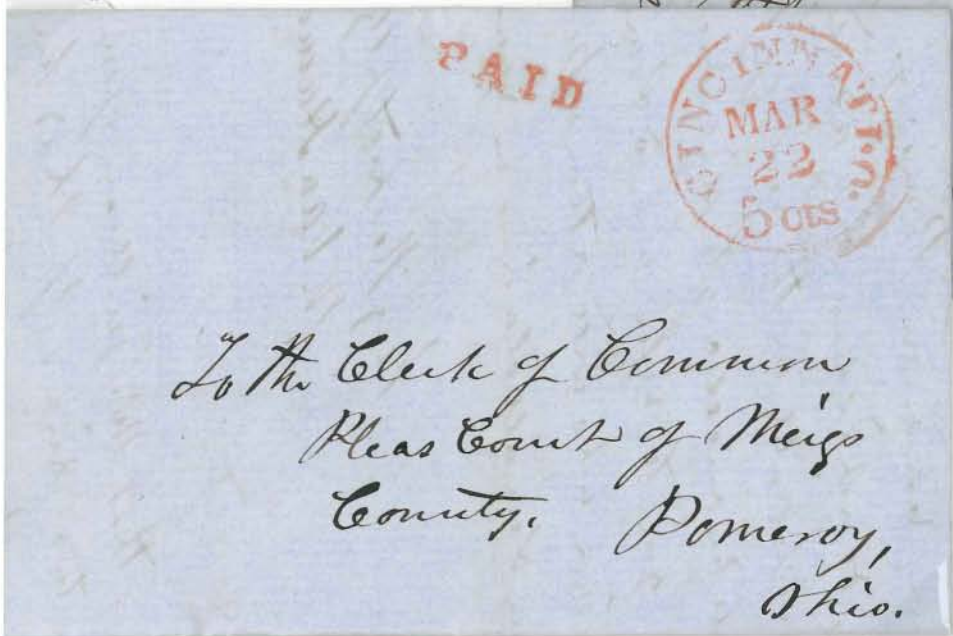 PAID
CINCINNATI·O.
MAR
22
5 CTS
To the Clerk of Common
Pleas Court of Meigs
County. Pomeroy,
Ohio.